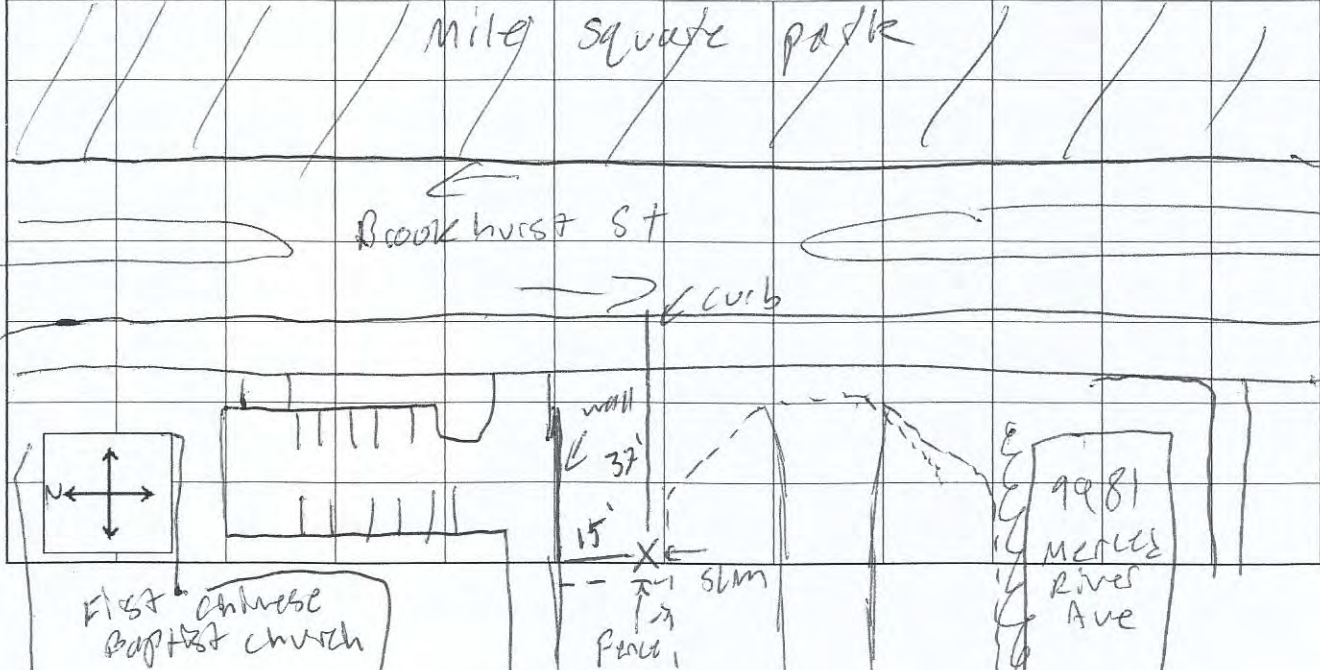 Mile square park
Brookhurst St
curb
wall
37'
15'
X
SLM
Fence
N
First Chinese
Baptist church
9981
Merced
River
Ave